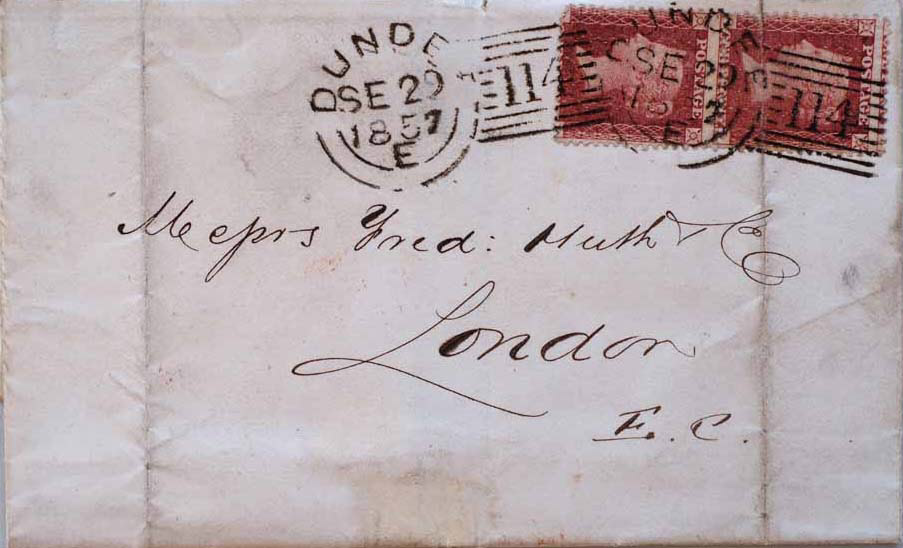 DUNDEE
SE 29
1857
E
114
DUNDEE
SE 29
1857
E
114
POSTAGE
POSTAGE
Messrs Fred: Huth & Co
London
E.C.